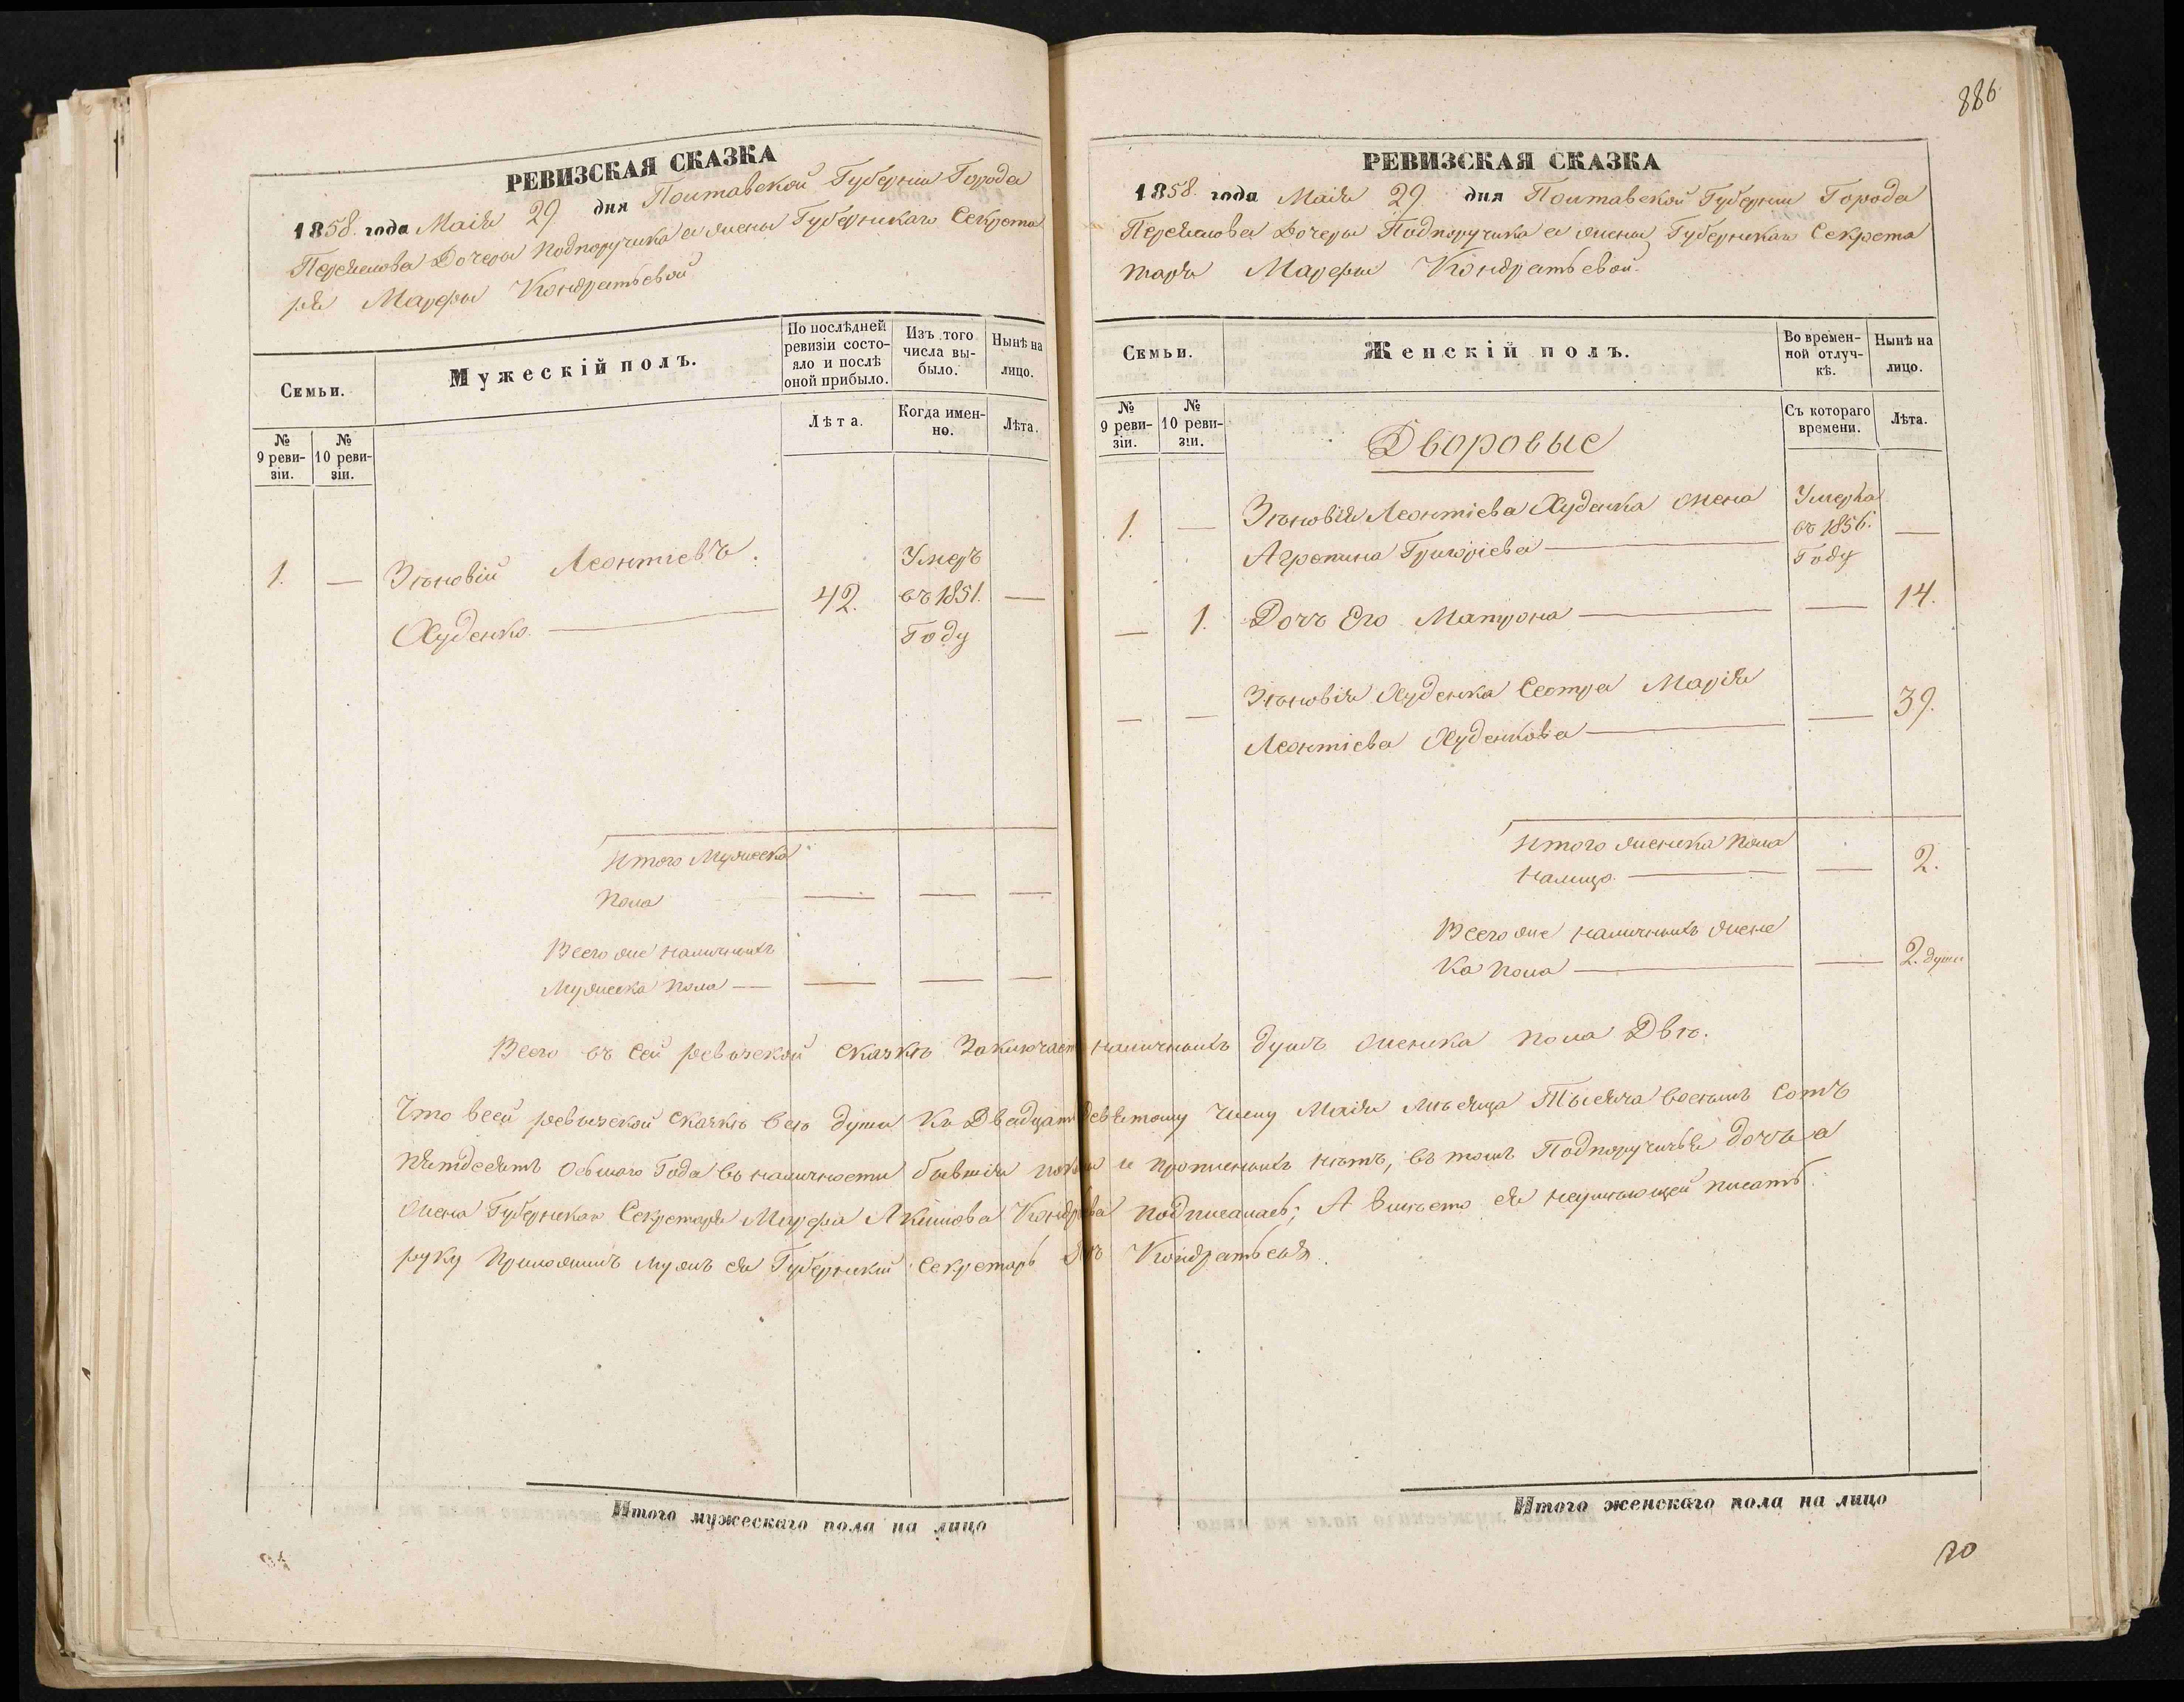 РЕВИЗСКАЯ СКАЗКА
1858. года Маія 29 дня Полтавской Губерніи Города
Переяслова Дочери Подпоручика а жены Губернскаго Секрета
ря Марфы Кондратьевой
Семьи.
Мужескій полъ.
По послѣдней ревизіи состояло и послѣ оной прибыло.
Изъ того числа выбыло.
Нынѣ на лицо.
№ 9 ревизіи.
№ 10 ревизіи.
Лѣта.
Когда именно.
Лѣта.
1. — Зѣновій Леонтіевъ
Худенко — 42. Умеръ въ 1851. Году —
Итого Мужеска
Пола — — —
Всего же наличныхъ
Мужеска пола — — — —
Итого мужескаго пола на лицо
886
РЕВИЗСКАЯ СКАЗКА
1858. года Маія 29 дня Полтавской Губерніи Города
Переяслова Дочери Подпоручика а жены Губернскаго Секрета
таря Марфы Кондратьевой.
Семьи.
Женскій полъ.
Во временной отлучкѣ.
Нынѣ на лицо.
№ 9 ревизіи.
№ 10 ревизіи.
Съ котораго времени.
Лѣта.
Дворовые
1. — Зѣновія Леонтіева Худенка жена
Агрепина Григоріева — Умерла въ 1856. Году —
— 1. Дочь Его Матрона — — 14.
— — Зѣновія Худенка Сестра Марія
Леонтіева Худенкова — — 39.
Итого женска пола
налицо. — — 2.
Всего же наличныхъ жене
ка пола — — 2. души
Всего въ сей ревизской сказкѣ Заключает наличныхъ душъ женска пола Двѣ.
Что всей ревизской сказкѣ всѣ души Къ Двадцать девятому числу Маія мѣсяца Тысяча восемь сотъ
пятдесятъ осьмого Года въ наличности бывшія и прописныхъ нѣтъ, въ томъ Подпоручичья дочь а
жена Губернскаго Секретаря Марфа Акимова подписалась; А вмѣсто ея неумеющей писать
руку приложилъ мужъ ея Губернскій Секретарь Кондратьевъ.
Итого женскаго пола на лицо